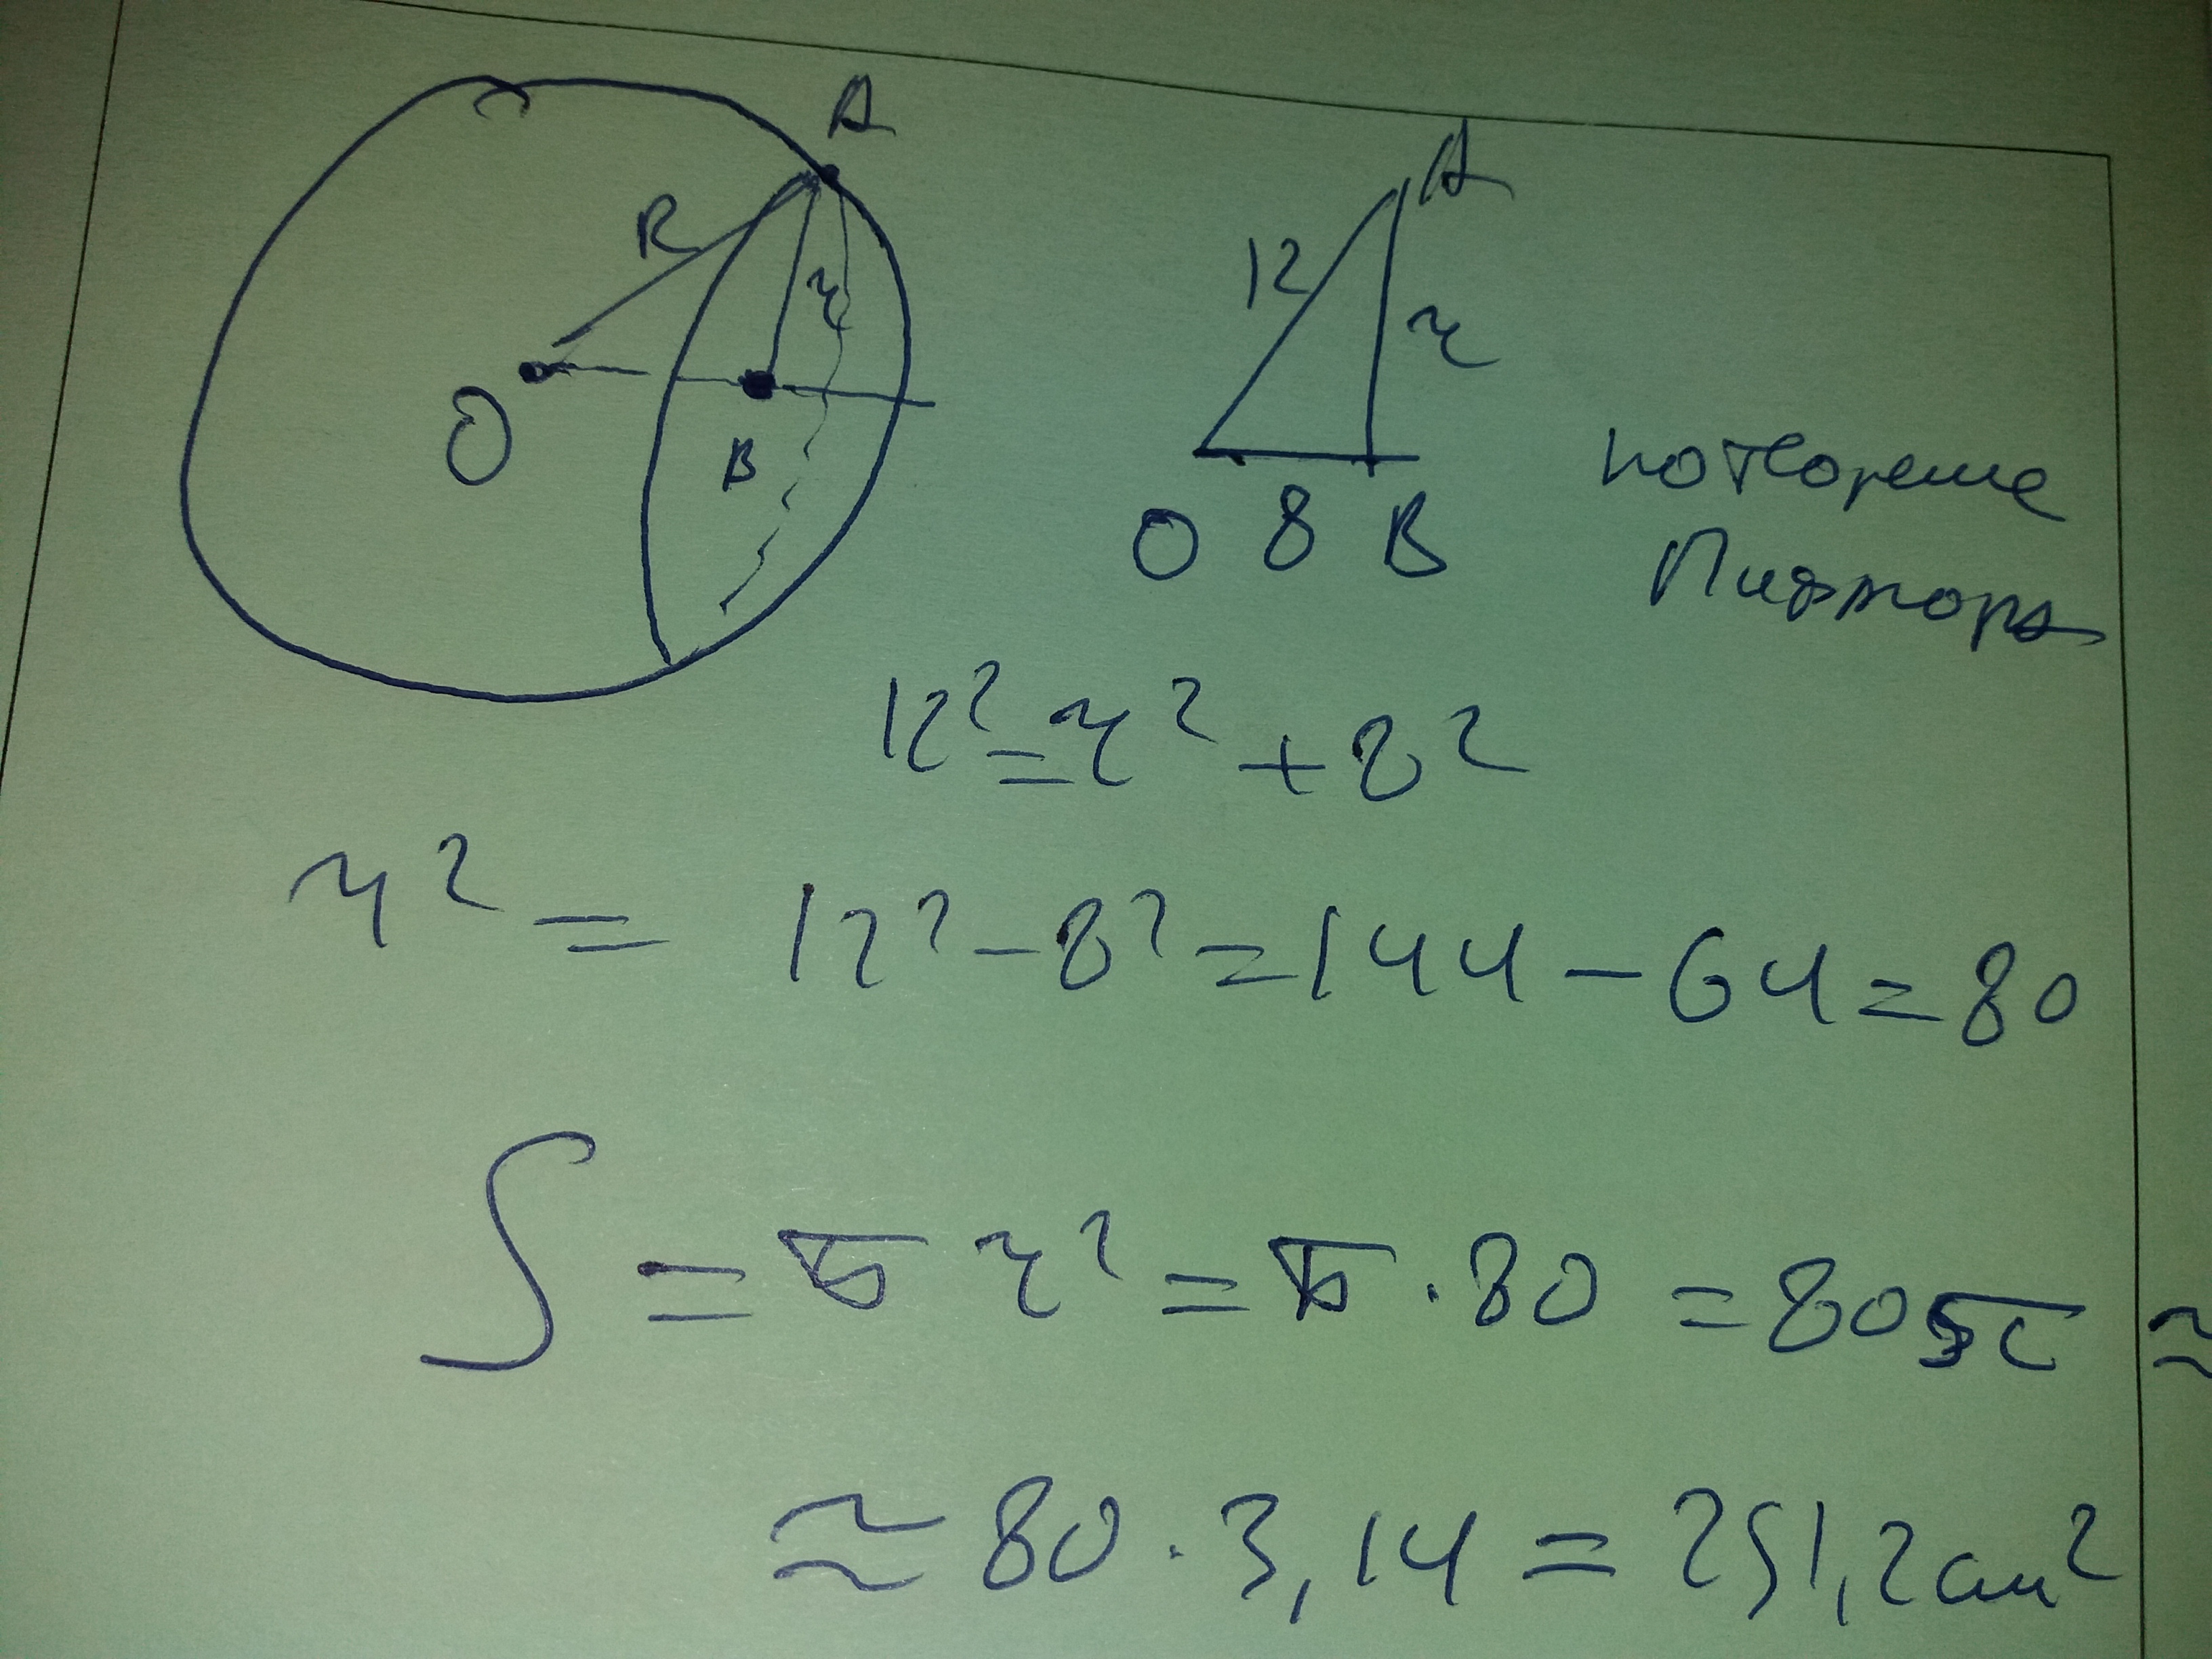 A
R
r
O
B
A
12
r
O 8 B
по теореме
Пифагора
12² = r² + 8²
r² = 12² - 8² = 144 - 64 = 80
S = π r² = π · 80 = 80π ≈
≈ 80 · 3,14 = 251,2 см²